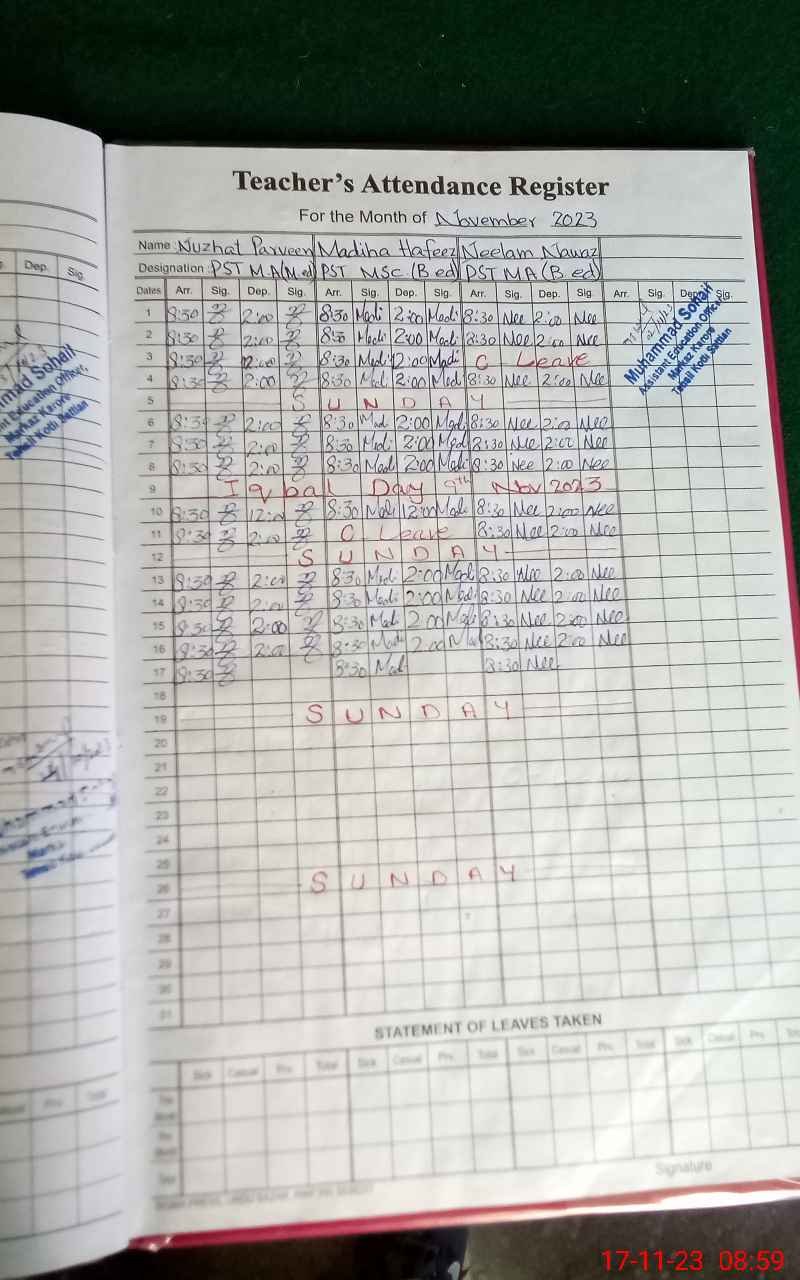 Teacher's Attendance Register
For the Month of November 2023
Name: Nuzhat Parveen Madiha Hafeez Neelam Nawaz
Designation: PST M A (M.ed) PST MSc (B ed) PST MA (B ed)
Dates Arr. Sig. Dep. Sig. Arr. Sig. Dep. Sig. Arr. Sig. Dep. Sig. Arr. Sig. Dep. Sig.
1 8:30 2:00 8:30 Madi 2:00 Madi 8:30 Nee 2:00 Nee
2 8:30 2:00 8:30 Madi 2:00 Madi 8:30 Nee 2:00 Nee
3 8:30 12:00 8:30 Madi 12:00 Madi C Leave
4 8:30 2:00 8:30 Mad 2:00 Madi 8:30 Nee 2:00 Nee
5 S U N D A Y
6 8:30 2:00 8:30 Mad 2:00 Madi 8:30 Nee 2:00 Nee
7 8:30 2:00 8:30 Madi 2:00 Madi 8:30 Nee 2:00 Nee
8 8:30 2:00 8:30 Madi 2:00 Madi 8:30 Nee 2:00 Nee
9 Iqbal Day 9th Nov 2023
10 8:30 12:00 8:30 Madi 12:00 Madi 8:30 Nee 2:00 Nee
11 8:30 2:00 C Leave 8:30 Nee 2:00 Nee
12 S U N D A Y
13 8:30 2:00 8:30 Madi 2:00 Madi 8:30 Nee 2:00 Nee
14 8:30 2:00 8:30 Madi 2:00 Madi 8:30 Nee 2:00 Nee
15 8:30 2:00 8:30 Madi 2:00 Madi 8:30 Nee 2:00 Nee
16 8:30 2:00 8:30 Madi 2:00 Mad 8:30 Nee 2:00 Nee
17 8:30 8:30 Mad 8:30 Nee
18
19 S U N D A Y
20
21
22
23
24
25
26 S U N D A Y
27
28
29
30
31
Muhammad Sohail
Assistant Education Officer
Markaz Karore
Tehsil Kotli Sattian
STATEMENT OF LEAVES TAKEN
Sick Casual Prv. Total Sick Casual Prv. Total Sick Casual Prv. Total Sick Casual Prv.
Total
Signature
Dep. Sig.
Sohail
Education Officer,
Markaz Karore
Tehsil Kotli Sattian
17-11-23 08:59